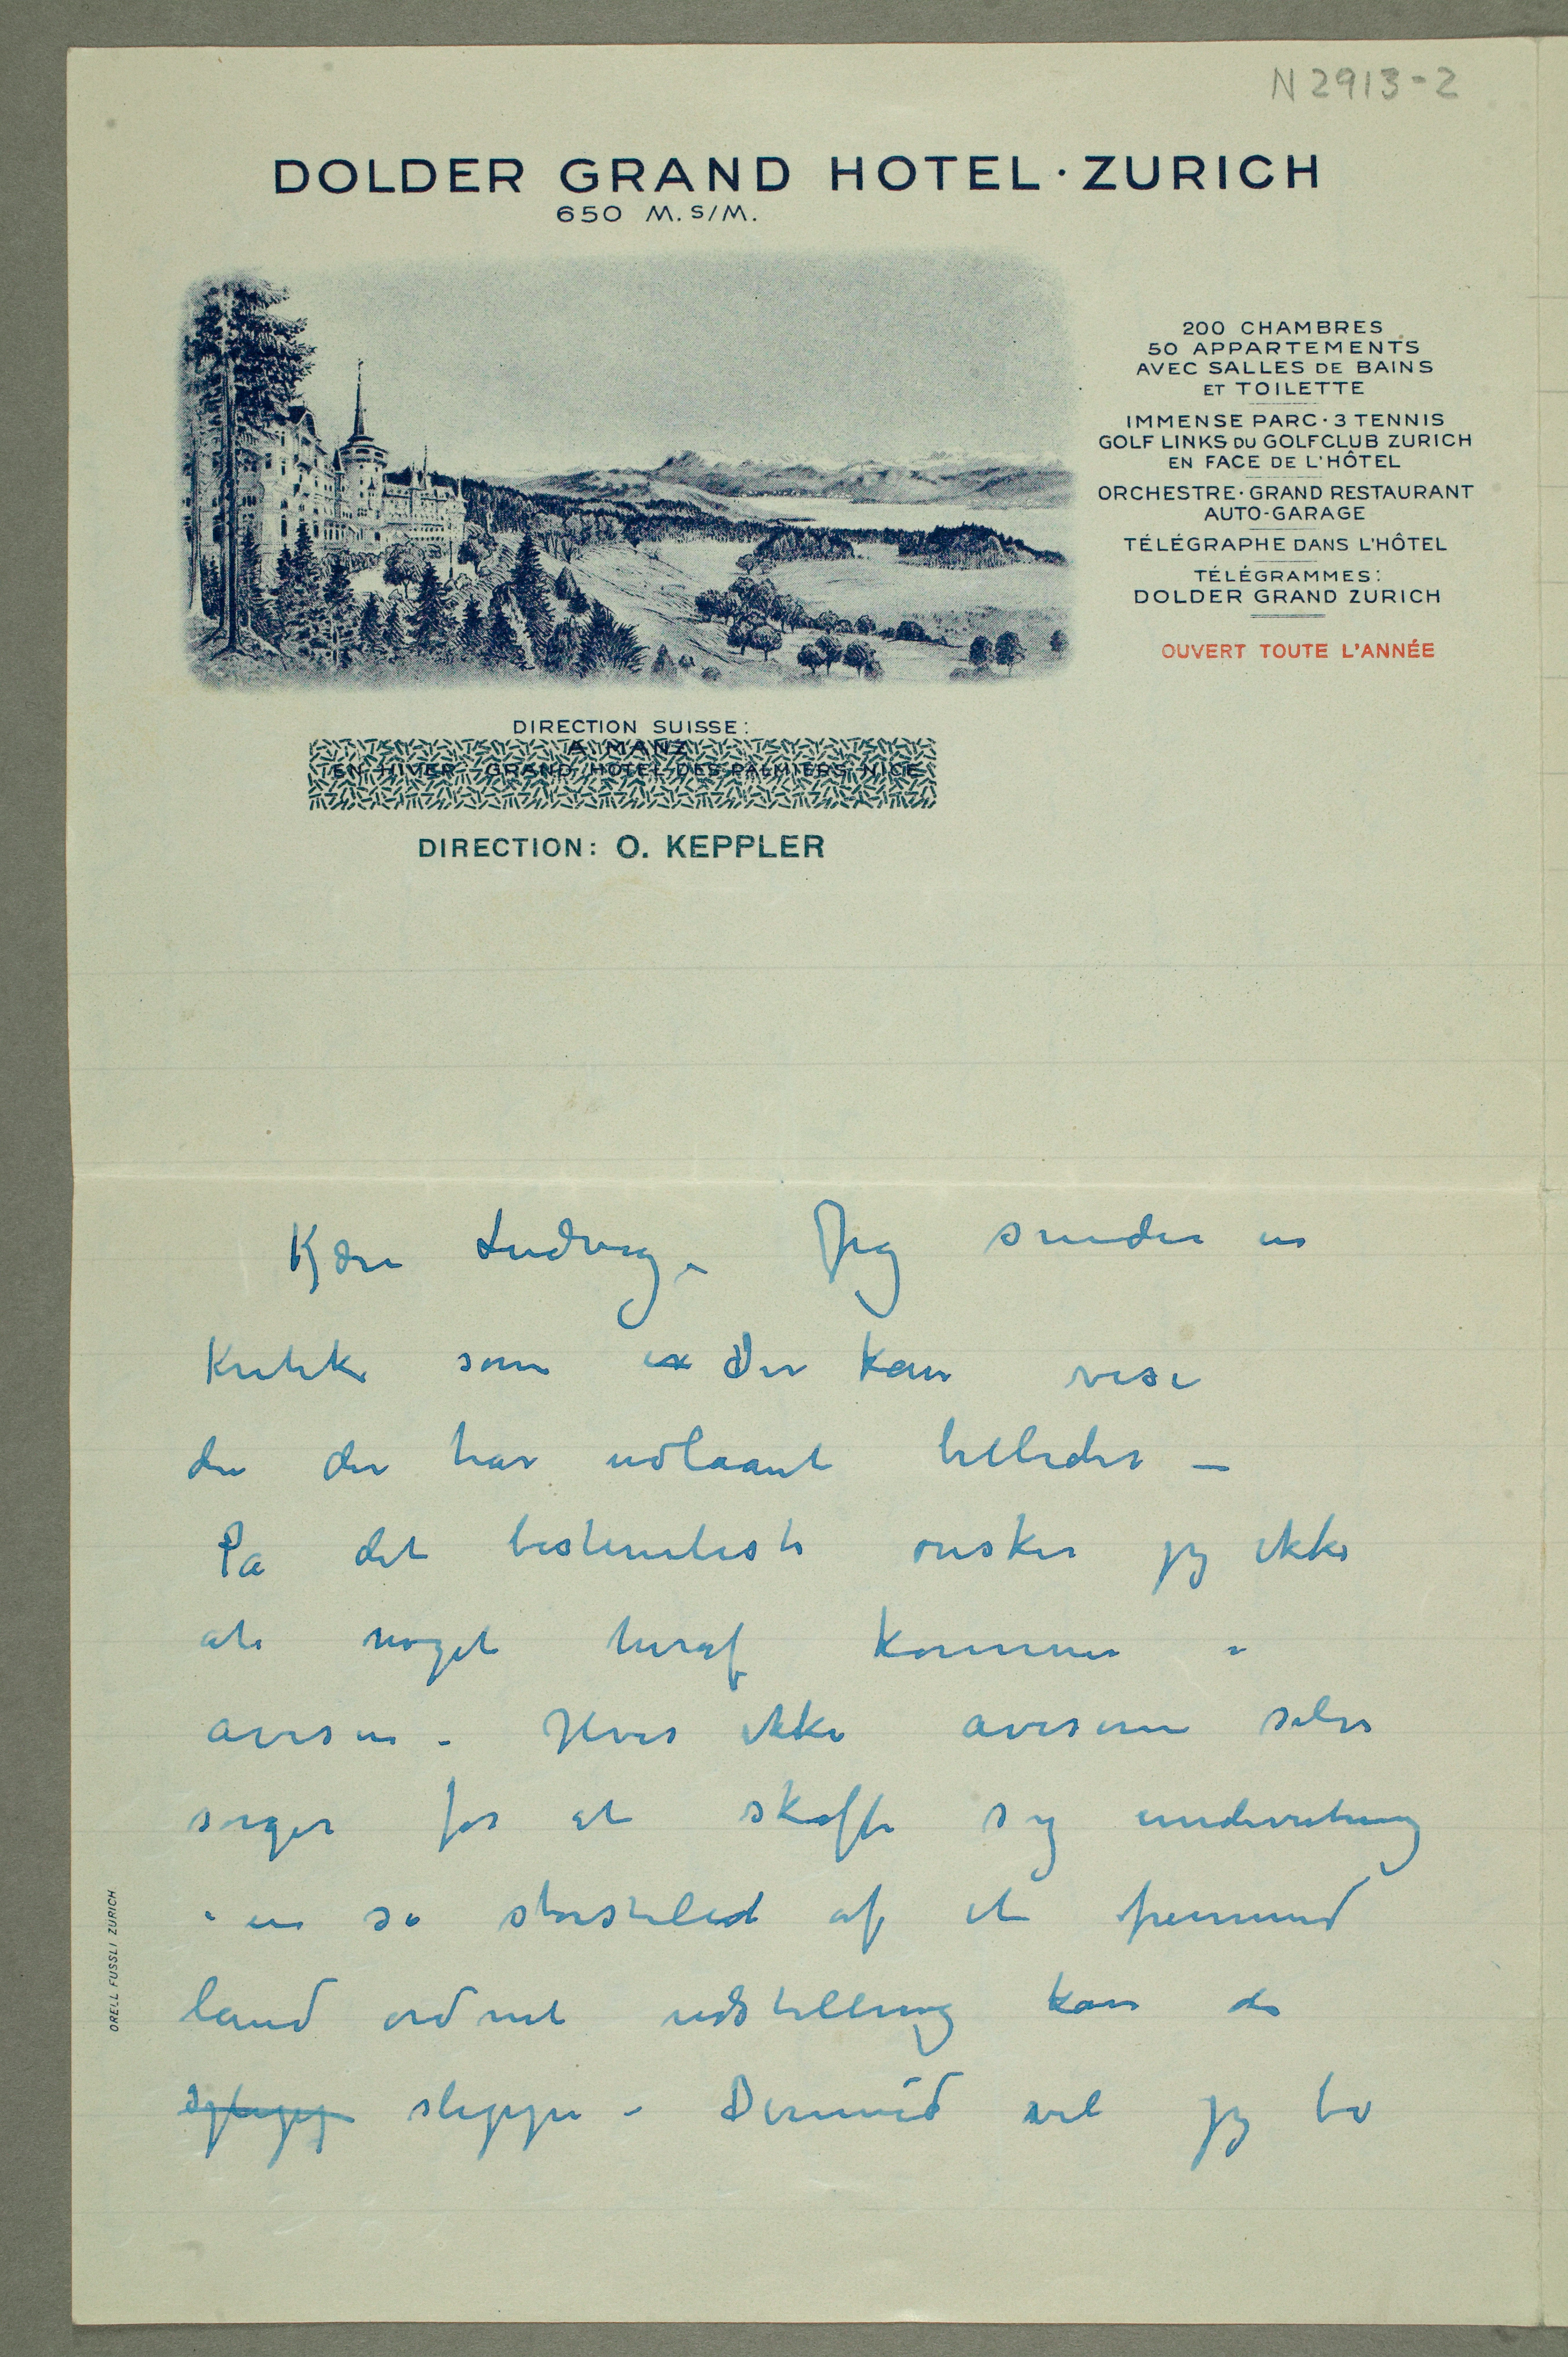 N 2913-2
DOLDER GRAND HOTEL · ZURICH
650 M. S/M.
200 CHAMBRES
50 APPARTEMENTS
AVEC SALLES DE BAINS
ET TOILETTE
IMMENSE PARC · 3 TENNIS
GOLF LINKS DU GOLFCLUB ZURICH
EN FACE DE L'HÔTEL
ORCHESTRE · GRAND RESTAURANT
AUTO-GARAGE
TÉLÉGRAPHE DANS L'HÔTEL
TÉLÉGRAMMES:
DOLDER GRAND ZURICH
OUVERT TOUTE L'ANNÉE
DIRECTION SUISSE:
A. MANZ
EN HIVER: GRAND HOTEL DES PALMIERS NICE
DIRECTION: O. KEPPLER
Kære Ludvig – Jeg sender en
Kritik som Du kan vise
de der har udlaant billeder –
På det bestemteste ønsker jeg ikke
at noget heraf kommer i
avisen – Hvis ikke aviserne selv
sørger for at skaffe sig underretning
i en så storstilet af et fremmed
land ordnet udstilling kan de
slippe – Dermed vil jeg be
ORELL FUSSLI ZURICH